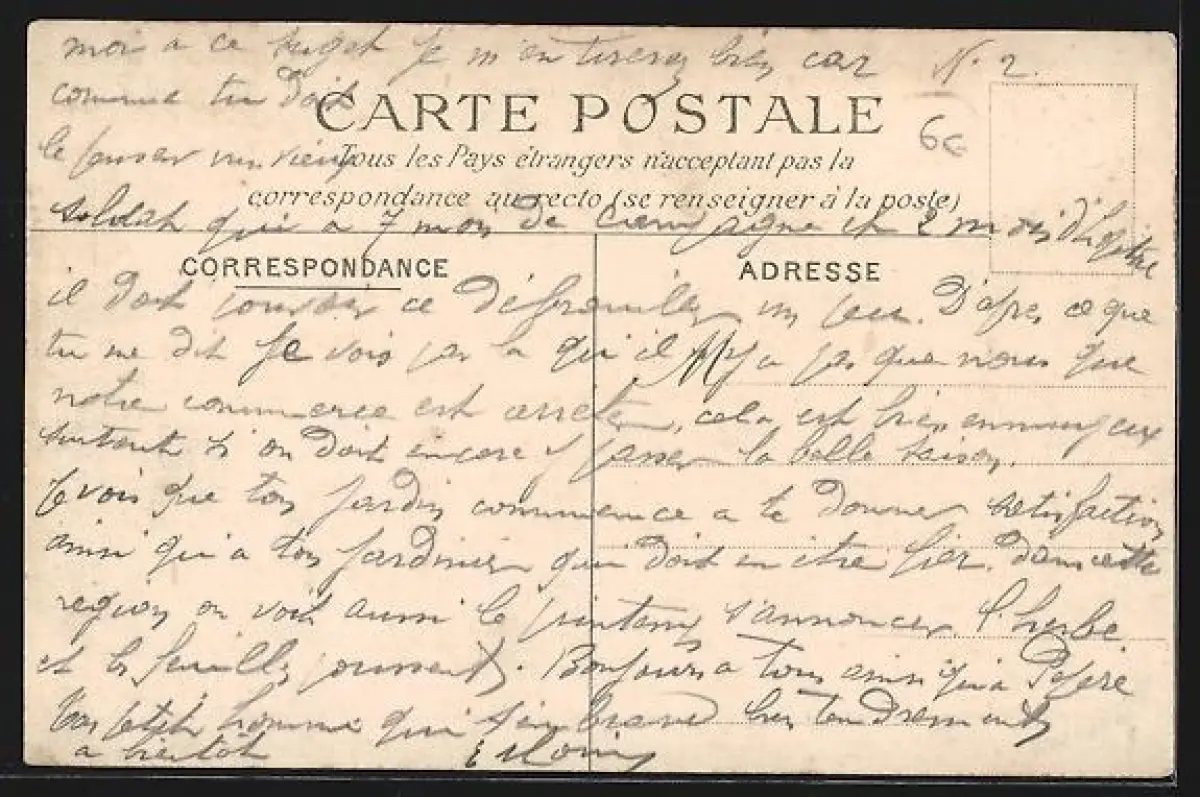 moi a ce sujet je m'en tirerez bien car N. 2.
comme tu doit
CARTE POSTALE
6€
le penser un vieux
Tous les Pays étrangers n'acceptant pas la
correspondance au recto (se renseigner à la poste)
soldat qui a 7 mois de campagne et 2 mois d'hopital
CORRESPONDANCE
ADRESSE
il doit pouvoir ce débrouiller un peu. D'apres ce que
tu me dit je vois par la qu'il n'y a pas que nous que
notre commerce est arreter, cela est bien ennuyeux
surtout si on doit encore y passer la belle saison.
Je vois que ton jardin commence a te donner satisfaction
ainsi qu'a ton jardinier qui doit en être fier. Dans cette
region on voit aussi le printemps s'annoncer l'herbe
et les feuilles poussent. Bonjours a tous ainsi qu'a Pépère
Ton petit homme qui bien tendrement
a bientot